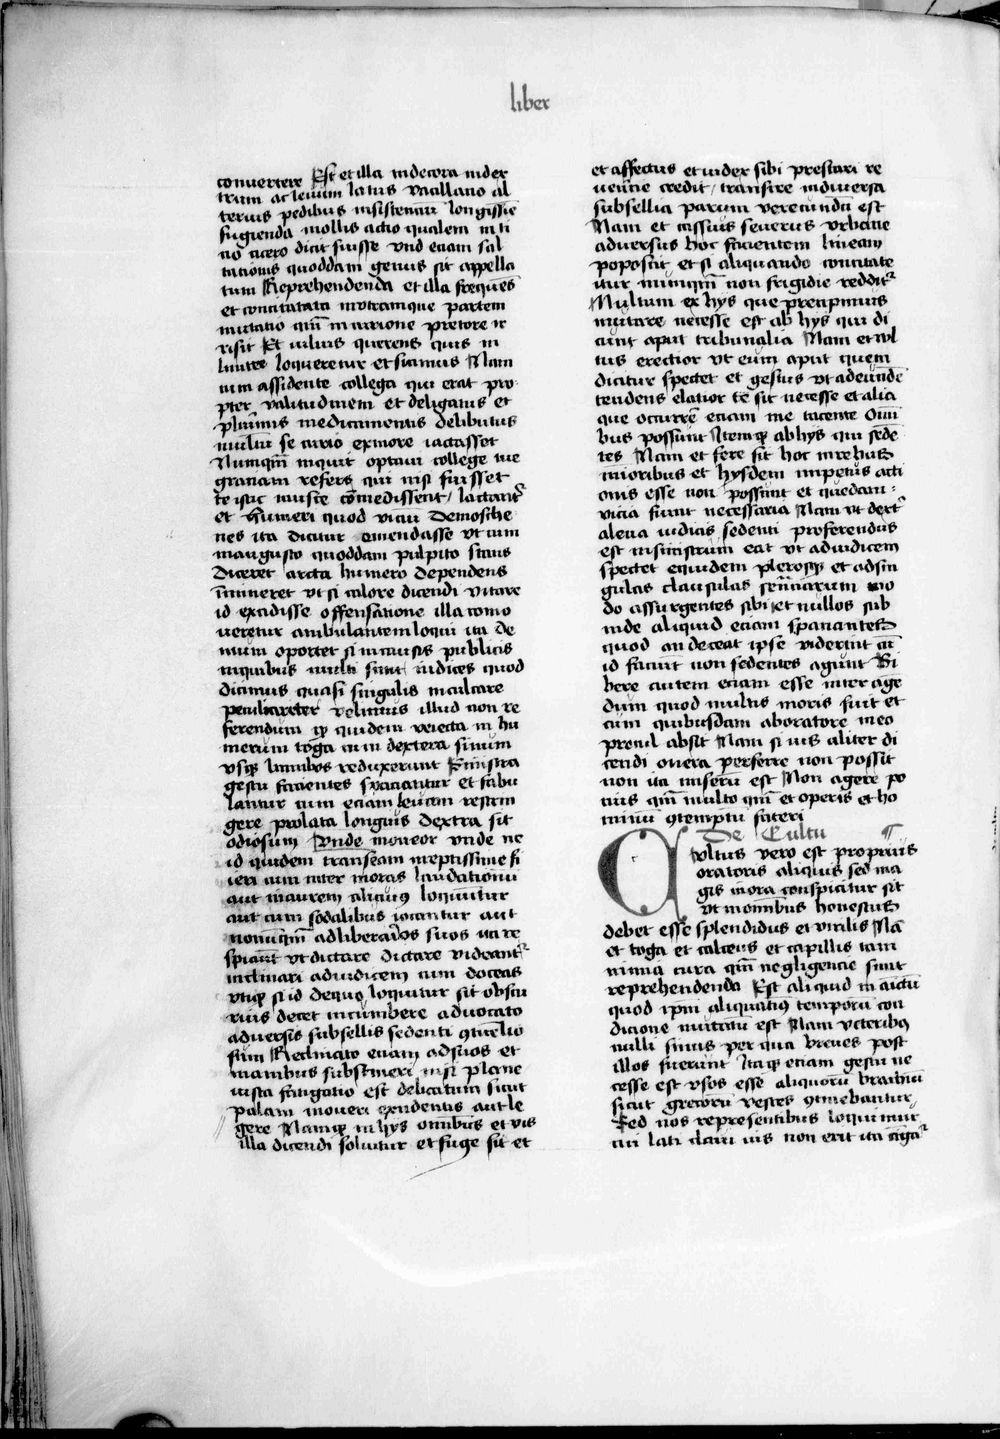 liber
convertere Est et illa indecora index
trum ac levum latus vacillatio al
terius pedibus insistentiu longissie
fugienda mollis actio qualem in ti
tio cicero dicit fuisse vnd etiam sal
tationis quoddam genus sit appella
tum Reprehendenda et illa frequēs
et concitatata inotramque partem
mutatio qm̄ in curione pretore ir
risit Et iulius querens quis in
luntre loqueretur et sicinius Nam
cum assidente collega qui erat pro
pter valitudinem et deligatus et
plurimis medicamentis delibutus
multū se curio ex more iactasset
Numqm̄ inquit optavi college tue
gratiam refers qui nisi fuisset
te istic musce cōmedissent / Iactant᷑
et humeri quod viciū Demosthe
nes ita dicitur emendasse vt cum
inaugusto quoddam pulpito stans
diceret arcta humero dependens
īmineret vt si calore dicendi vitare
id excidisse offensatione illa como
veretur ambulantem loqui ita de
mum oportet si in causis publicis
inquibus multi sunt iudices quod
dicimus quasi singulis inculcare
peculiareter velimus illud non re
ferendum qp quidem reiecta in hu
merum toga cum dextera sinum
vsqꝫ lumbos reduxerunt Sinistra
gestu facientes spaciantur et fabu
lantur cum etiam leucam restrin
gere prolata longius dextra sit
odiosum Vnde moneor vnde ne
id quidem transeam ineptissime fi
ieri cum inter moras laudationū
aut inaurem alicuiꝰ loquūtur
aut cum sodalibus iocantur aut
nonumqm̄ ad liberarios suos ita re
spiciūt vt dictare dictare videant᷑
inclinari adiudicem cum doceas
vtiqꝫ si id dequo loquitur sit obscu
rius decet incumbere advocato
adversis subsellis sedenti ꝯtūelio
sum Reclinato etiam adsuos et
manibus substineri nisi plane
iusta fatigatio est delicatum sicut
palam moneri excidentis aut le
gere Namqꝫ in hijs omībus et vis
illa dicendi solvitur et fuge sit et
et affectus et iudex sibi prestari re
uentie credit / transire indiversa
subsellia parum verecundū est
Nam et cassius severus vrbane
adversus hoc facientem lineam
poposcit et si aliquando concitate
itur numqm̄ non frigidie reddit᷑
Multum ex hijs que precipimus
mutare necesse est ab hijs qui di
cunt aput tribunalia Nam et wl
tus erectior vt eum aput quem
dicitur spectet et gestus vt adeūndē
tendens elatior te sit necesse et alia
que occurre etiam me tacente Omī
bus possunt Itemqꝫ ab hijs qui sedē
tes Nam et fere sit hoc in rebuꝫ
minioribus et hysdem impetus acti
onis esse non possunt et quedam
vicia fiunt necessaria Nam vt dext᷑
aleua iudicis sedenti proferendus
est insinistrum eat vt adiudicem
spectet equidem plerosqꝫ et adsin
gulas clausulas sentenciarum uio
do assurgentes sibi et nullos sub
inde aliquid etiam spaciantes
quod an deceat ipse viderint cū
id faciūt non sedentes agunt Bi
bere autem etiam esse inter agē
dum quod multis moris fuit et
cum quibusdam aboratore meo
procul absit Nam si uis aliter di
cendi onera perferre non possit
non ita miserū est Non agere po
tius qm̄ multo qm̄ et operis et ho
minum ꝯtemptū fateri
De Cultu ¶
Cvltus vero est proprius
oratoris aliquis sed ma
gis inora conspicitur sit
vt inomībus honestus
debet esse splendidus et virilis Nā
et toga et calceus et capillis tam
nimia cura qm̄ negligencie sunt
reprehendenda Est aliquid in auctū
quod ipm̄ aliquatiꝰ temporū con
dicione mutatū est Nam veteribꝰ
nulli sinus per qua breues post
illos fuerunt Itaqꝫ etiam gestu ne
cesse est vsos esse aliquorū braibiū
sicut grecorū vestes ꝯtinebantur
Sed nos represententibus loquimur
cui lati claui uis non erit ita cīgat᷑